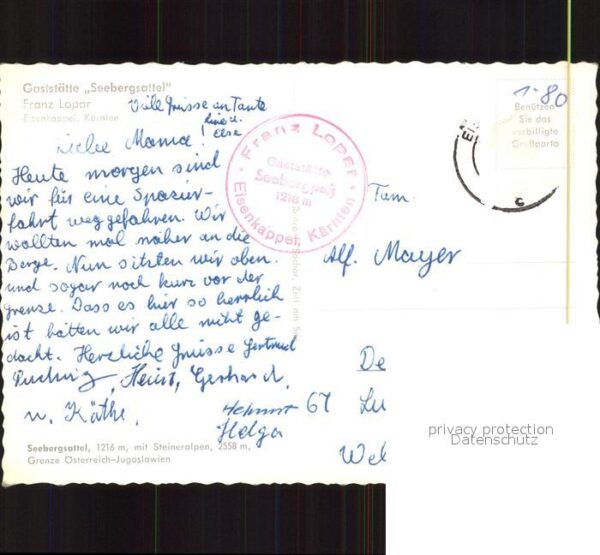 Gaststätte „Seebergsattel"
Franz Lopar
Eisenkappel, Kärnten
Viele Grüsse an Tante
u.
Else
Liebe Mama!
Heute morgen sind
wir für eine Spazier-
fahrt weggefahren. Wir
wollten mal näher an die
Berge. Nun sitzten wir oben
und sogar noch kurz vor der
grenze. Dass es hier so herrlich
ist hätten wir alle nicht ge-
dacht. Herzliche Grüsse Gertrud
Heinz, Gerhard,
u. Käthe.
Helmut
Helga
Seebergsattel, 1216 m, mit Steineralpen, 2558 m,
Grenze Österreich-Jugoslawien
Franz Loper
Gaststätte
Seebergpaß
1218 m
Eisenkappel, Kärnten
Zell am See
1.80
Benützen
Sie das
verbilligte
Grußporto
c
Fam.
Alf. Mayer
De
67 Lu
We
privacy protection
Datenschutz